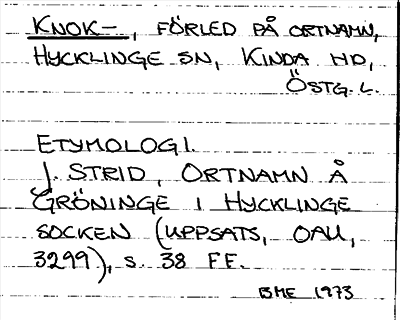 KNOK-, FÖRLED PÅ ORTNAMN,
HYCKLINGE SN, KINDA HD,
ÖSTG. L.
ETYMOLOGI.
J. STRID, ORTNAMN Å
GRÖNINGE I HYCKLINGE
SOCKEN (UPPSATS, OAU,
3299), S. 38 FF.
BME 1973